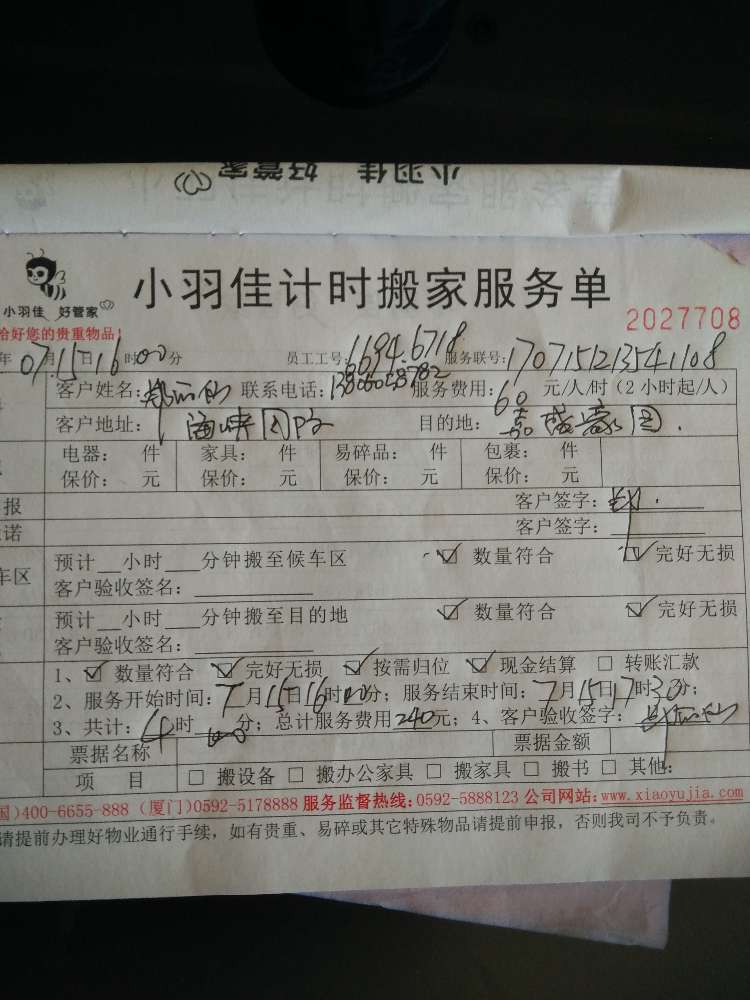 小羽佳 好管家
小羽佳 好管家
小羽佳计时搬家服务单
2027708
恰好您的贵重物品!
年07月15日16时00分 员工工号:1694.6718 服务联号:1707151213541108
客户姓名: 联系电话: 服务费用:60元/人/时(2小时起/人)
客户地址:海峡国际 目的地:嘉盛豪园.
电器: 件 家具: 件 易碎品: 件 包裹: 件
保价: 元 保价: 元 保价: 元 保价: 元
报 客户签字:赵.
诺 客户签字:
预计__小时___分钟搬至候车区 ☑ 数量符合 ☑ 完好无损
车区 客户验收签名:
预计__小时___分钟搬至目的地 ☑ 数量符合 ☑ 完好无损
客户验收签名:
1、☑ 数量符合 ☑ 完好无损 ☑ 按需归位 ☑ 现金结算 □ 转账汇款
2、服务开始时间:7月15日16时00分;服务结束时间:7月15日17时30分;
3、共计:4时 分;总计服务费用240元;4、客户验收签字:
票据名称 票据金额
项 目 □ 搬设备 □ 搬办公家具 □ 搬家具 □ 搬书 □ 其他:
国)400-6655-888 (厦门)0592-5178888 服务监督热线:0592-5888123 公司网站:www.xiaoyujia.com
请提前办理好物业通行手续,如有贵重、易碎或其它特殊物品请提前申报,否则我司不予负责。